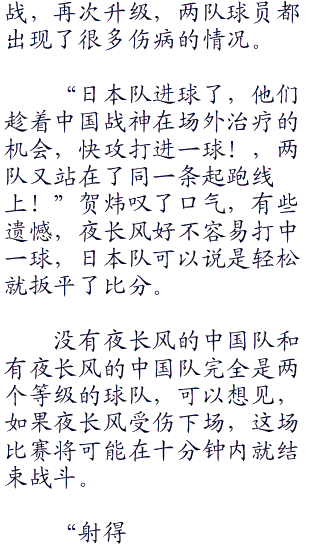 战，再次升级，两队球员都
出现了很多伤病的情况。
“日本队进球了，他们
趁着中国战神在场外治疗的
机会，快攻打进一球！，两
队又站在了同一条起跑线
上！”贺炜叹了口气，有些
遗憾，夜长风好不容易打中
一球，日本队可以说是轻松
就扳平了比分。
没有夜长风的中国队和
有夜长风的中国队完全是两
个等级的球队，可以想见，
如果夜长风受伤下场，这场
比赛将可能在十分钟内就结
束战斗。
“射得